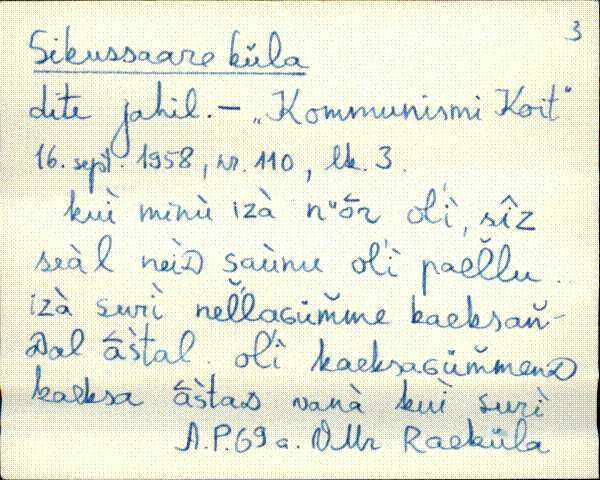 3
Sikussaare küla
dite jahil. – „Kommunismi Koit"
16. sept. 1958, nr. 110, lk. 3.
kuì minù izà n͔ᵘōr oĺì, sîz
seàl neìᴅ saùnu oĺì paeľľu.
izà surì neľľaɢüm̆me kaeksan̆-
ᴅal āstal. oĺì kaeksaɢüm̆menᴅ
kaeksa āstaᴅ vanà kuì surì
A.P. 69 a. Raeküla